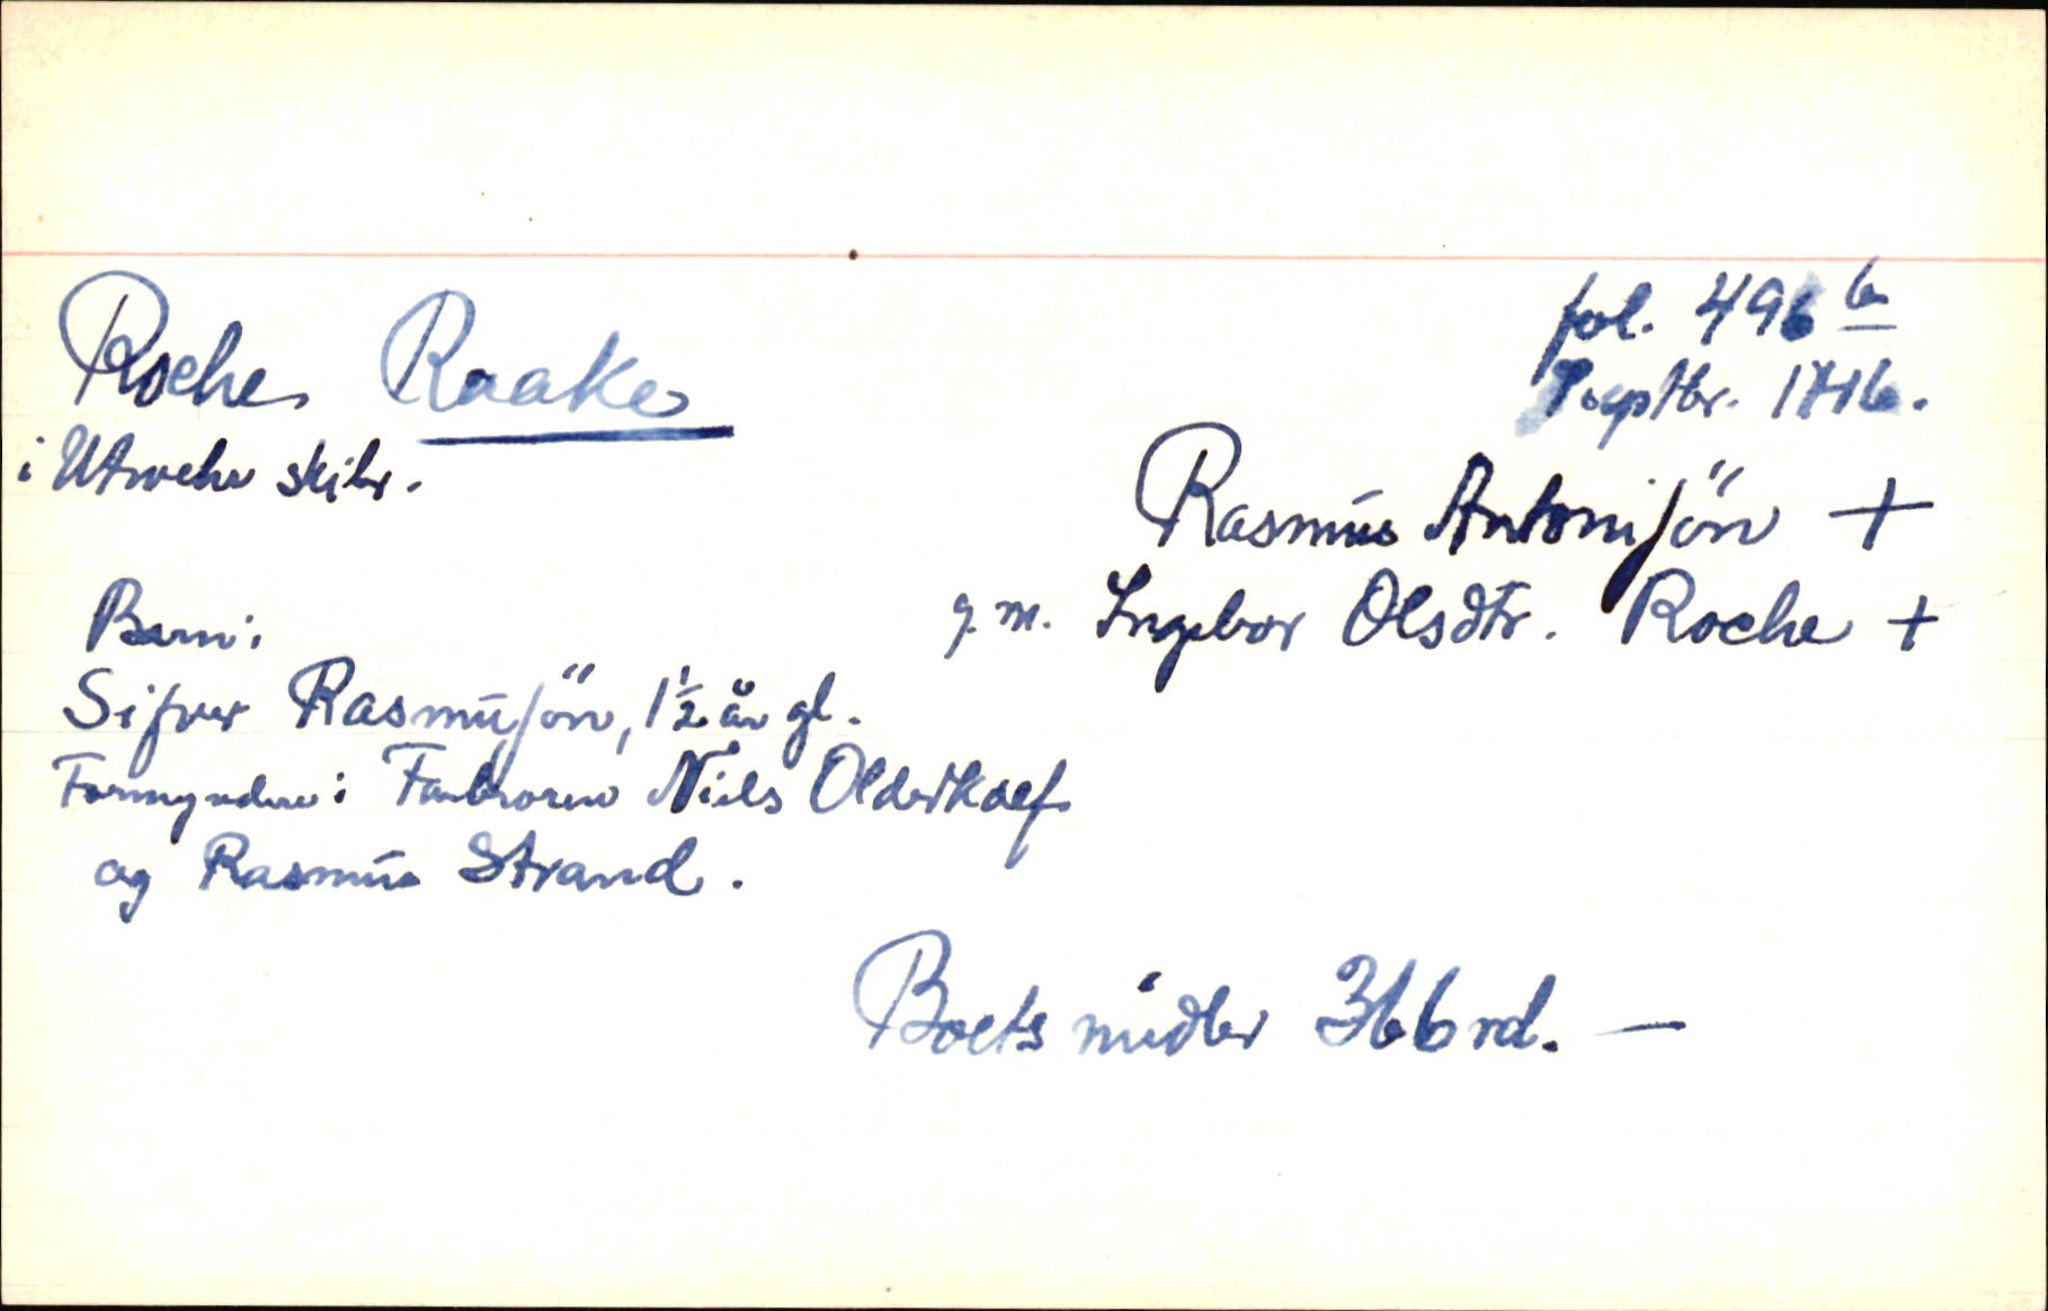 Roche Raake
fol. 496 b
septbr. 1746.
i Utwehr skibr.
Rasmus Antonisön +
g. m. Ingebor Olsdtr. Roche +
Barn:
Sifver Rasmusön, 1 1/2 år gl.
Formyndere: Farbroren Niels Olderkaef
og Rasmus Strand.
Boets midler 366 rd. —